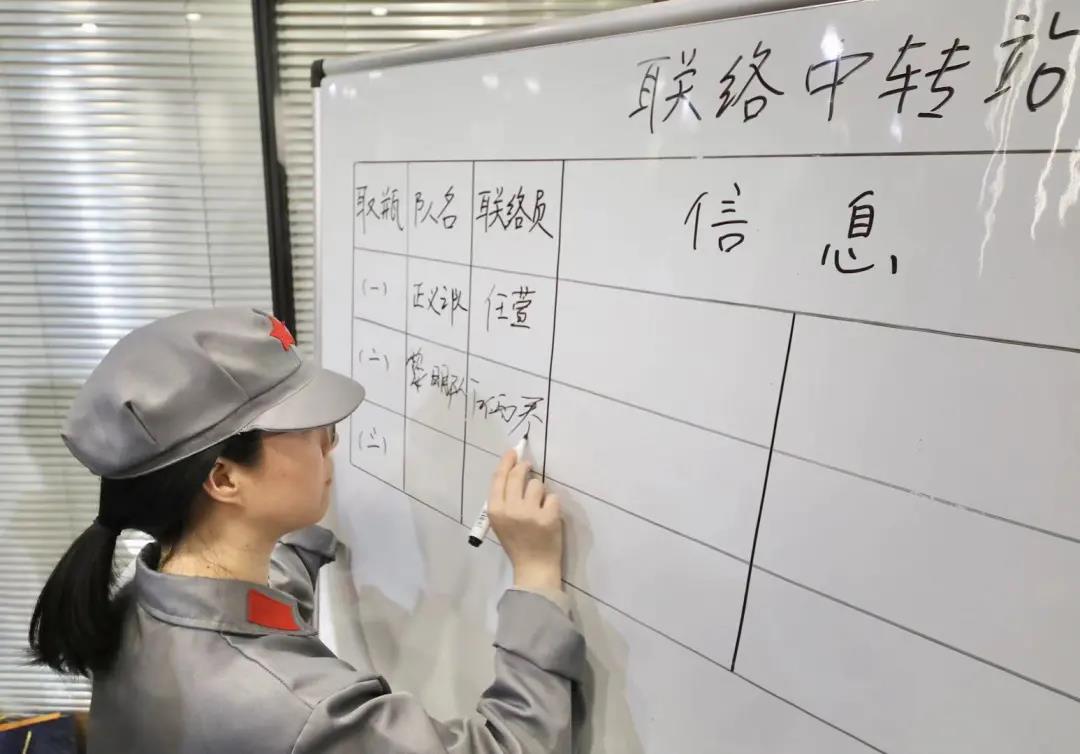 联络中转站
取瓶 队名 联络员 信息
(一) 正义之队 任萱
(二) 黎明队
(三)